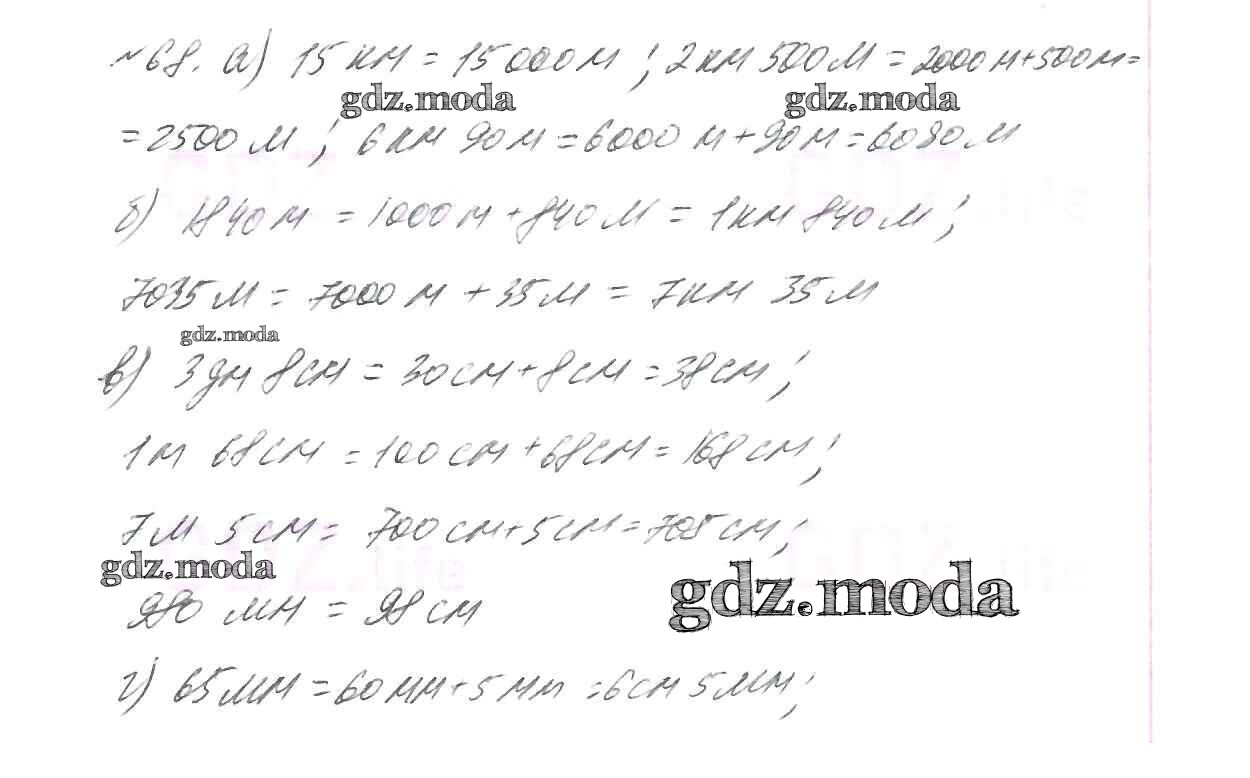 №68. а) 15 км = 15 000 м; 2 км 500 м = 2000 м + 500 м =
gdz.moda gdz.moda
= 2500 м; 6 км 90 м = 6000 м + 90 м = 6090 м
б) 1840 м = 1000 м + 840 м = 1 км 840 м;
7035 м = 7000 м + 35 м = 7 км 35 м
gdz.moda
в) 3 дм 8 см = 30 см + 8 см = 38 см;
1 м 68 см = 100 см + 68 см = 168 см;
7 м 5 см = 700 см + 5 см = 705 см;
gdz.moda
gdz.moda
980 мм = 98 см
г) 65 мм = 60 мм + 5 мм = 6 см 5 мм;